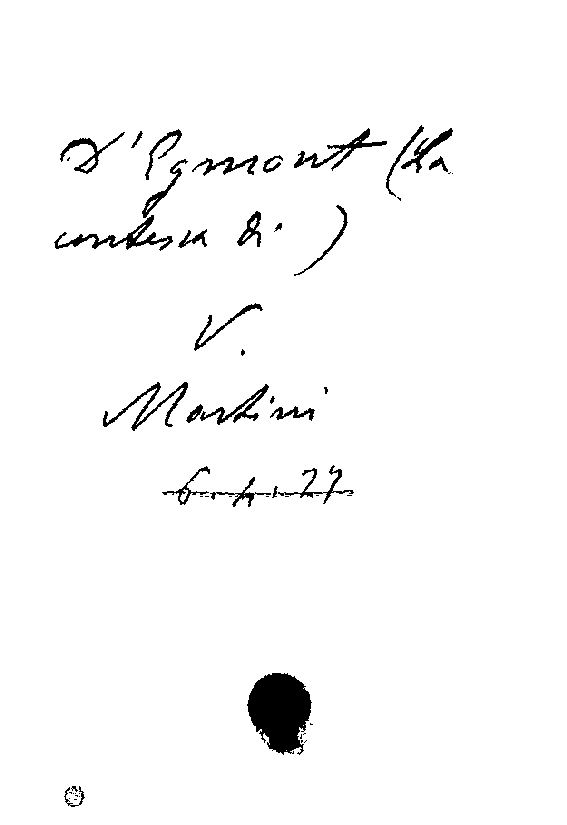 D'Egmont (La
contessa di)
V.
Martini
6.4.27